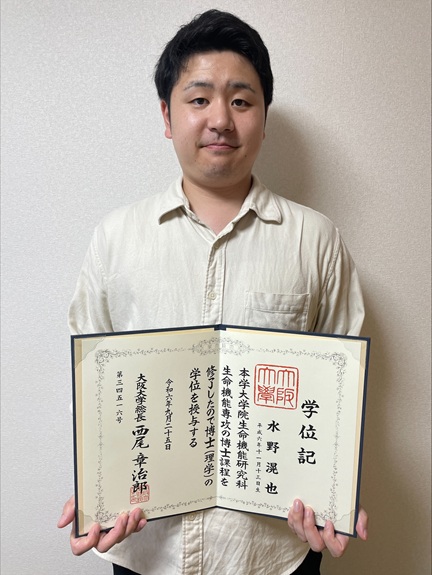 学位記
大阪大学
水野滉也
平成六年十一月十三日生
本学大学院生命機能研究科
生命機能専攻の博士課程を
修了したので博士(理学)の
学位を授与する
令和六年九月二十五日
大阪大学総長 西尾章治郎
第三四五一六号